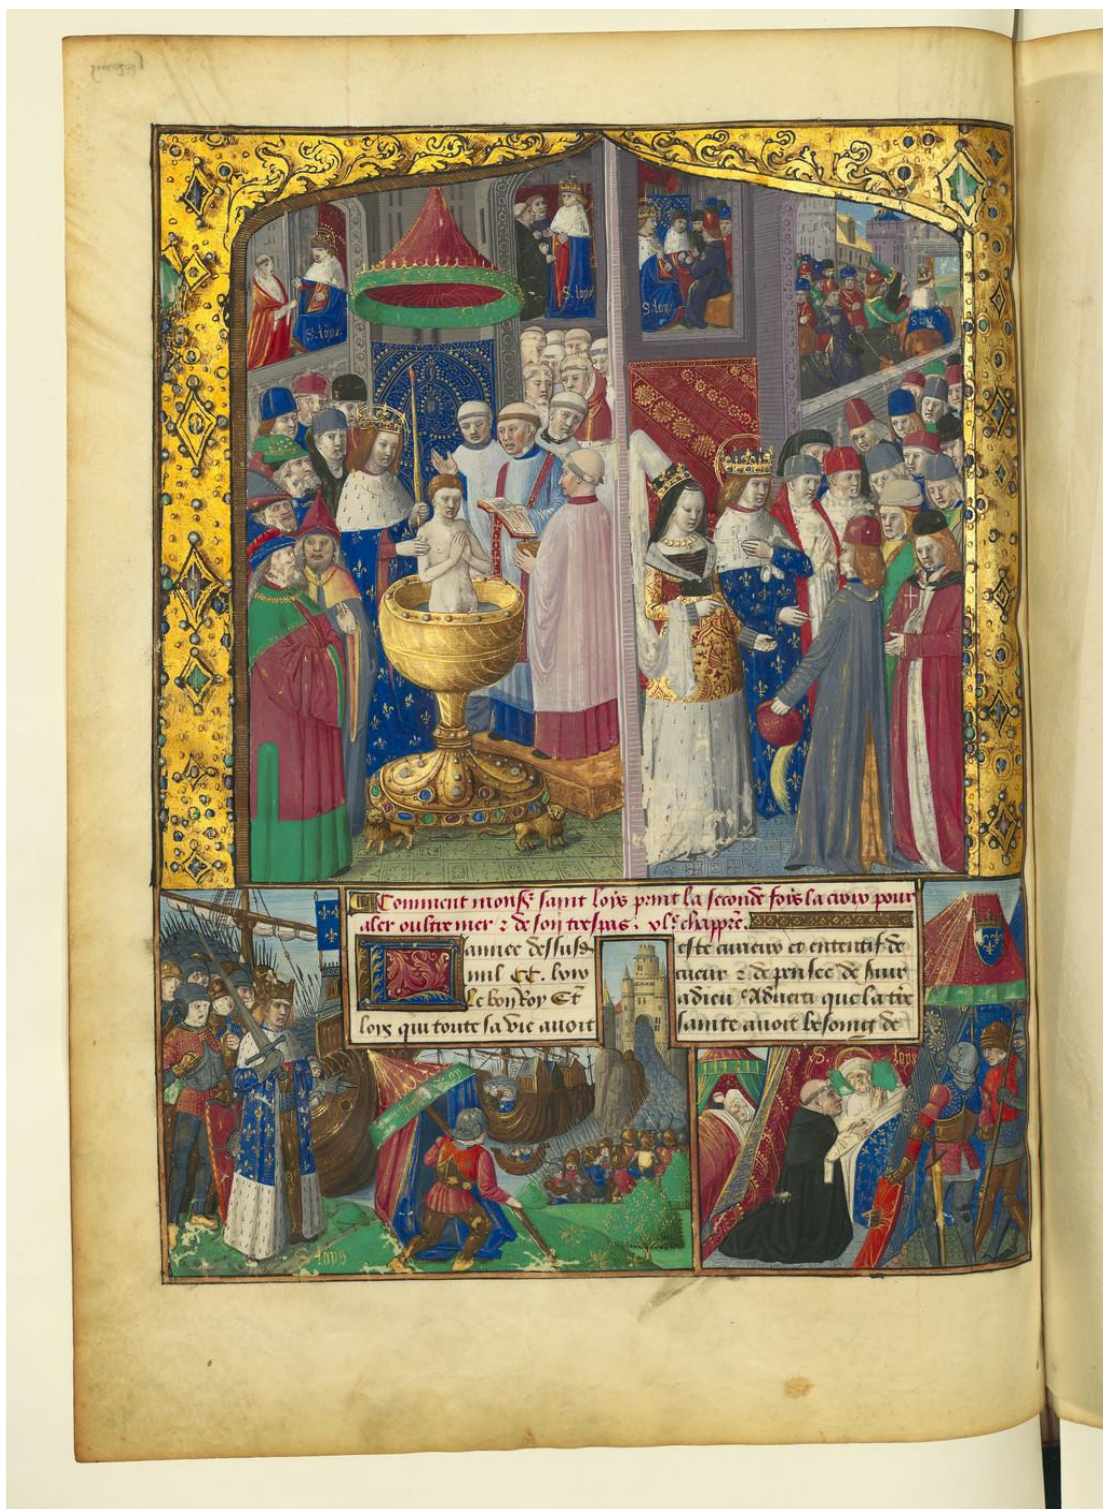 S. loys
S. loys
S. loys
S. loys
Comment monsr saint loys print la seconde fois la croix pour
aler oultre mer & de son trespas. xle chappre.
L'annee dessusd
mil CC. lxix
le bon Roy St
loys qui toute sa vie auoit
este curieux et ententif de
cueur & de pensee de seruir
a dieu Aduerti que la tre
sainte auoit besoing de
S. loys
S. loys